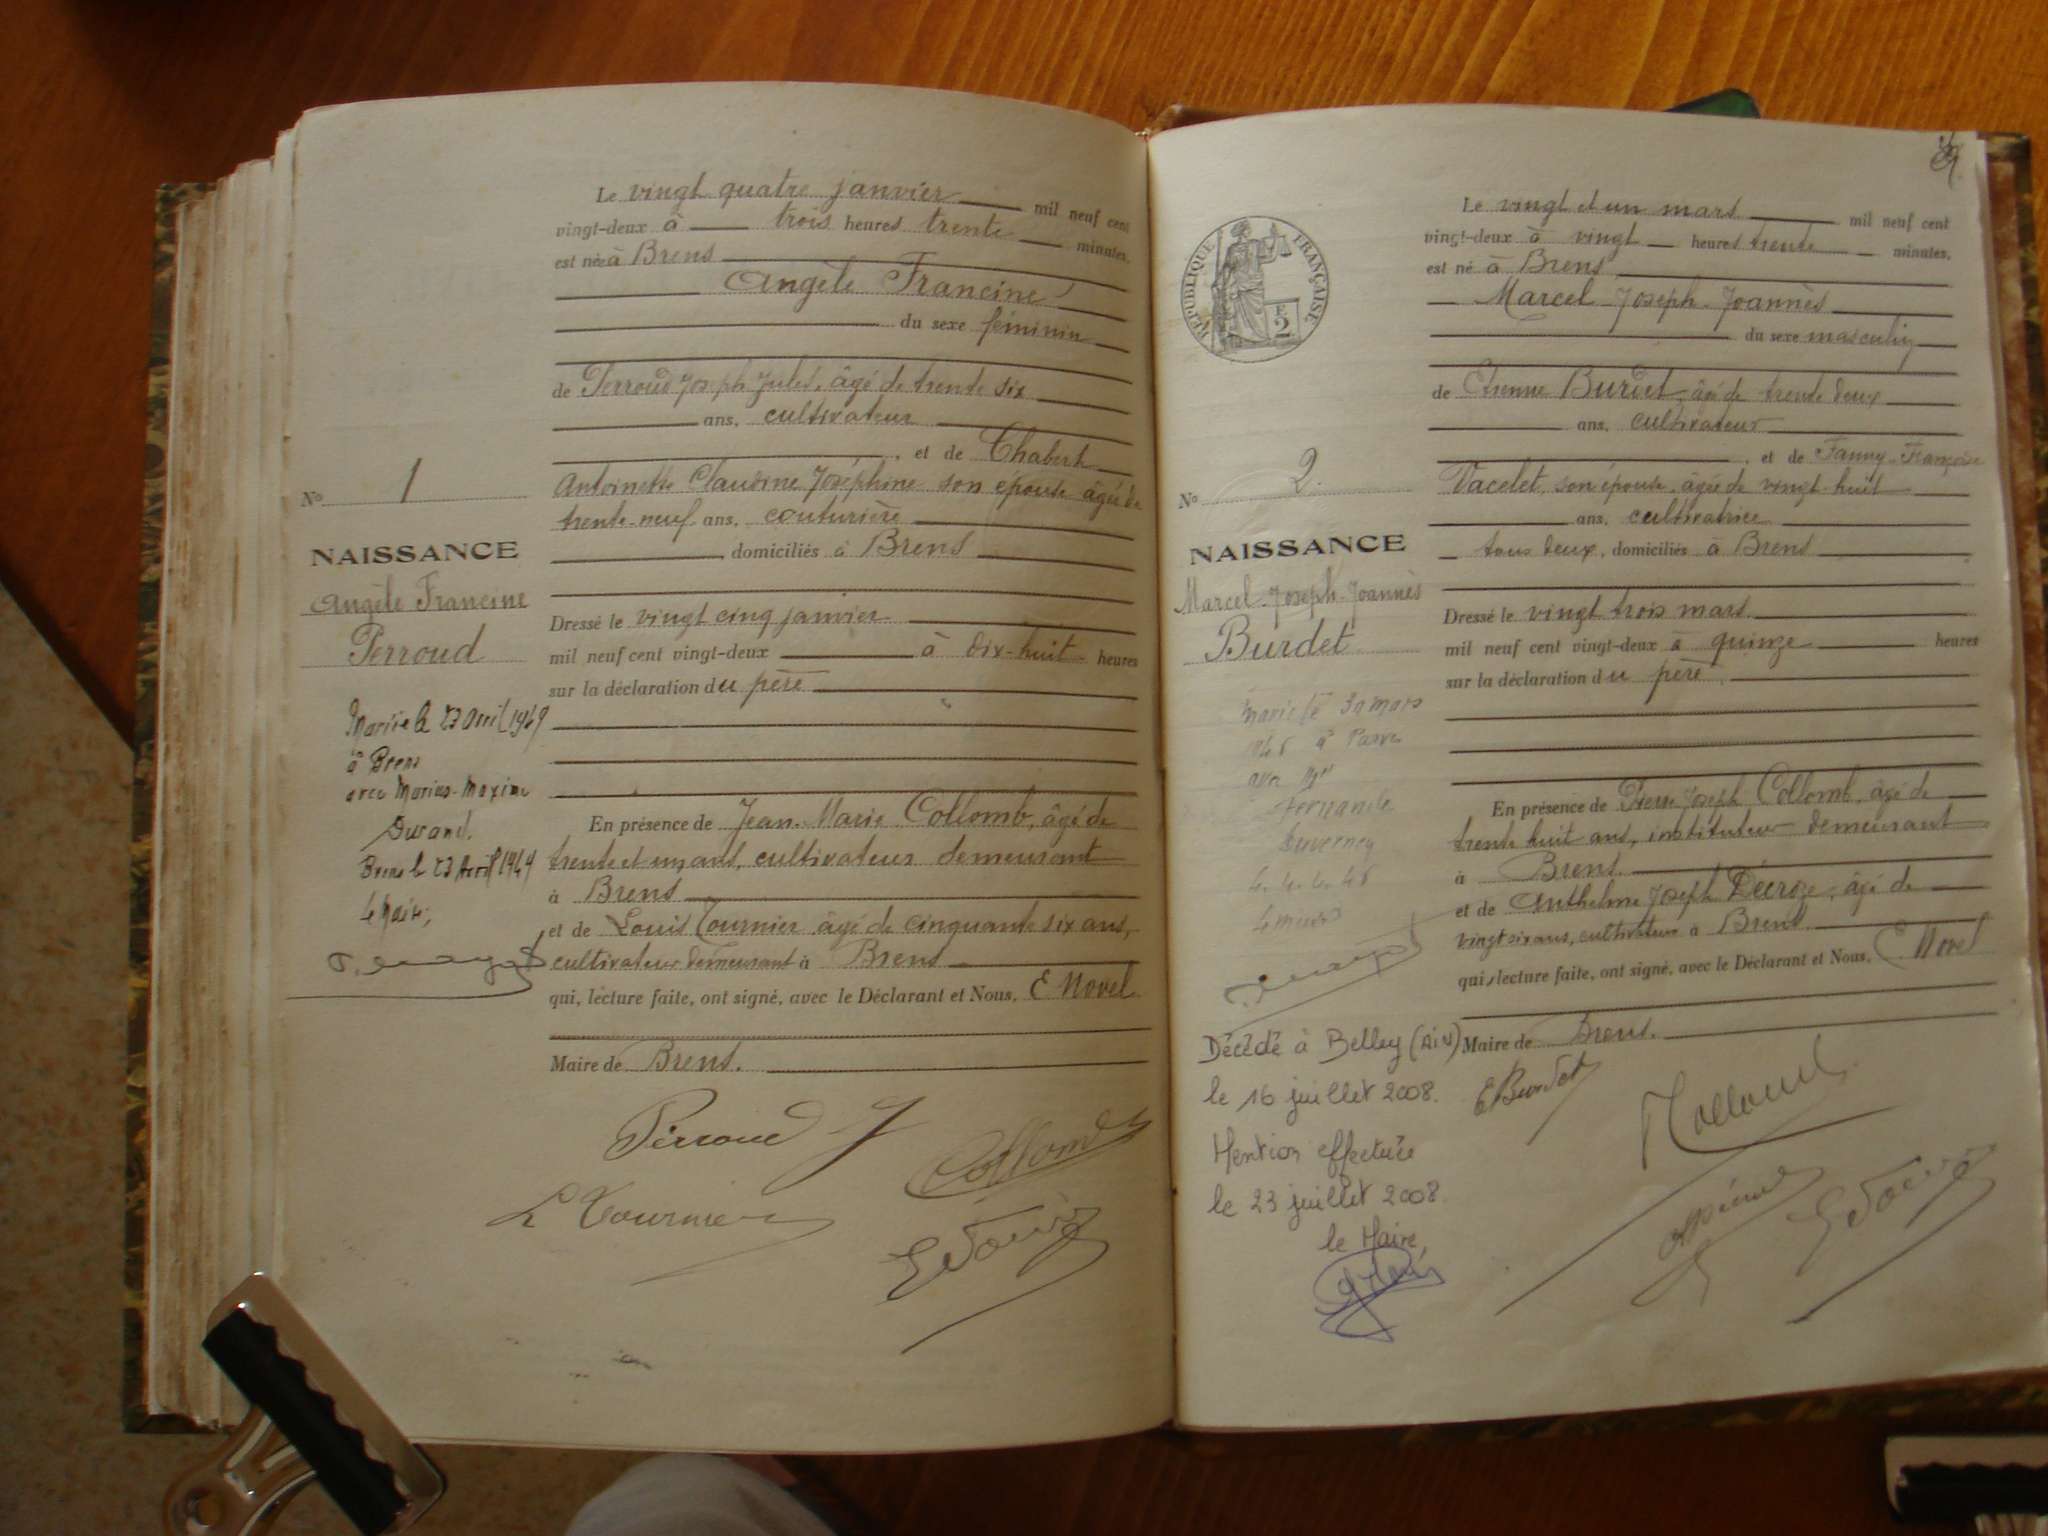 Le vingt quatre janvier mil neuf cent
vingt-deux à trois heures trente minutes,
est née à Brens
Angèle Francine
du sexe féminin
de Perroud Joseph Jules, âgé de trente six
ans, cultivateur
, et de Chabert
Antoinette Claudine Joséphine son épouse âgée de
trente-neuf ans, couturière
, domiciliés à Brens
Dressé le vingt cinq janvier
mil neuf cent vingt-deux à dix-huit heures
sur la déclaration du père
En présence de Jean-Marie Collomb, âgé de
trente et un ans, cultivateur demeurant
à Brens
et de Louis Tournier âgé de cinquante six ans,
cultivateur demeurant à Brens
qui, lecture faite, ont signé, avec le Déclarant et Nous, E Novel
Maire de Brens.
Perroud J
Collomb
L Tournier
No 1
NAISSANCE
Angèle Francine
Perroud
Mariée le 23 Avril 1949
à Brens
avec Marius-Maxime
Durand.
Brens le 23 Avril 1949
Le Maire,
RÉPUBLIQUE FRANÇAISE
E 2
Le vingt et un mars mil neuf cent
vingt-deux à vingt heures trente minutes,
est né à Brens
Marcel Joseph-Joannès
du sexe masculin
de Etienne Burdet, âgé de trente deux
ans, cultivateur
, et de Fanny-Françoise
Vacelet, son épouse, âgée de vingt huit
ans, cultivatrice
tous deux, domiciliés à Brens
Dressé le vingt trois mars
mil neuf cent vingt-deux à quinze heures
sur la déclaration du père
En présence de Pierre Joseph Collomb, âgé de
trente huit ans, instituteur demeurant
à Brens
et de Anthelme Joseph Décroze, âgé de
vingt six ans, cultivateur à Brens
qui, lecture faite, ont signé, avec le Déclarant et Nous, E Novel
Maire de Brens.
E Burdet
Collomb
No 2.
NAISSANCE
Marcel-Joseph-Joannès
Burdet
Marié le 30 mars
à
avec Mlle
Fernande
Duverney
Décédé à Belley (AIN)
le 16 juillet 2008.
Mention effectuée
le 23 juillet 2008.
le Maire,